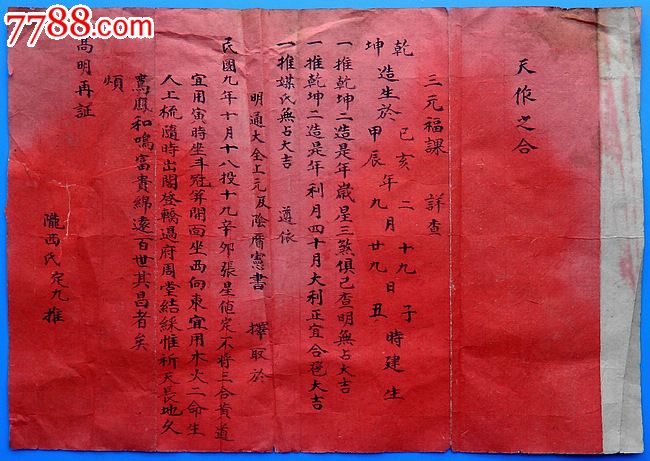 7788.com
天作之合
三元福課 詳查
乾 己亥 二 十九 子
造生於 年 月 日 時建生
坤 甲辰 九 廿九 丑
一推乾坤二造是年歲星三煞俱已查明無占大吉
一推乾坤二造是年利月四十月大利正宜合卺大吉
一推媒氏無占大吉 遵依
明通大全上元及陰曆憲書 擇取於
民國九年十月十八投十九辛卯張星值定不將三合黃道
宜用寅時坐斗冠笄開面坐西向東宜用木火二命生
人上梳隨時出閣啓轎過府周堂結綵惟祈天長地久
鸞鳳和鳴富貴綿遠百世其昌者矣
煩
高明再証
隴西氏定九推